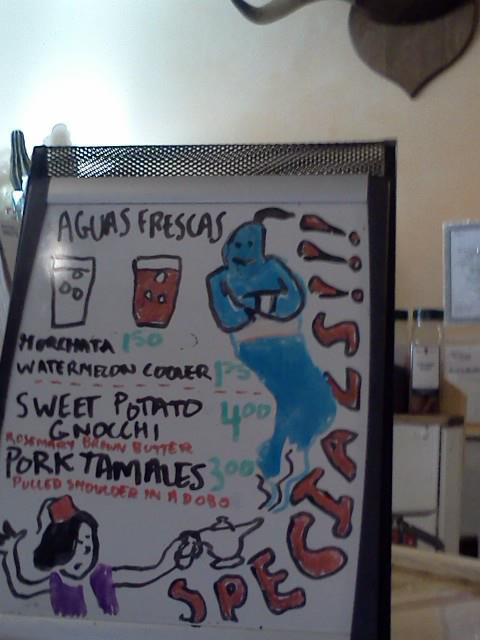 AGUAS FRESCAS
HORCHATA 1.50
WATERMELON COOLER 1.75
SWEET POTATO
GNOCCHI 4.00
ROSEMARY BROWN BUTTER
PORK TAMALES 3.00
PULLED SHOULDER IN ADOBO
SPECIALS!!!